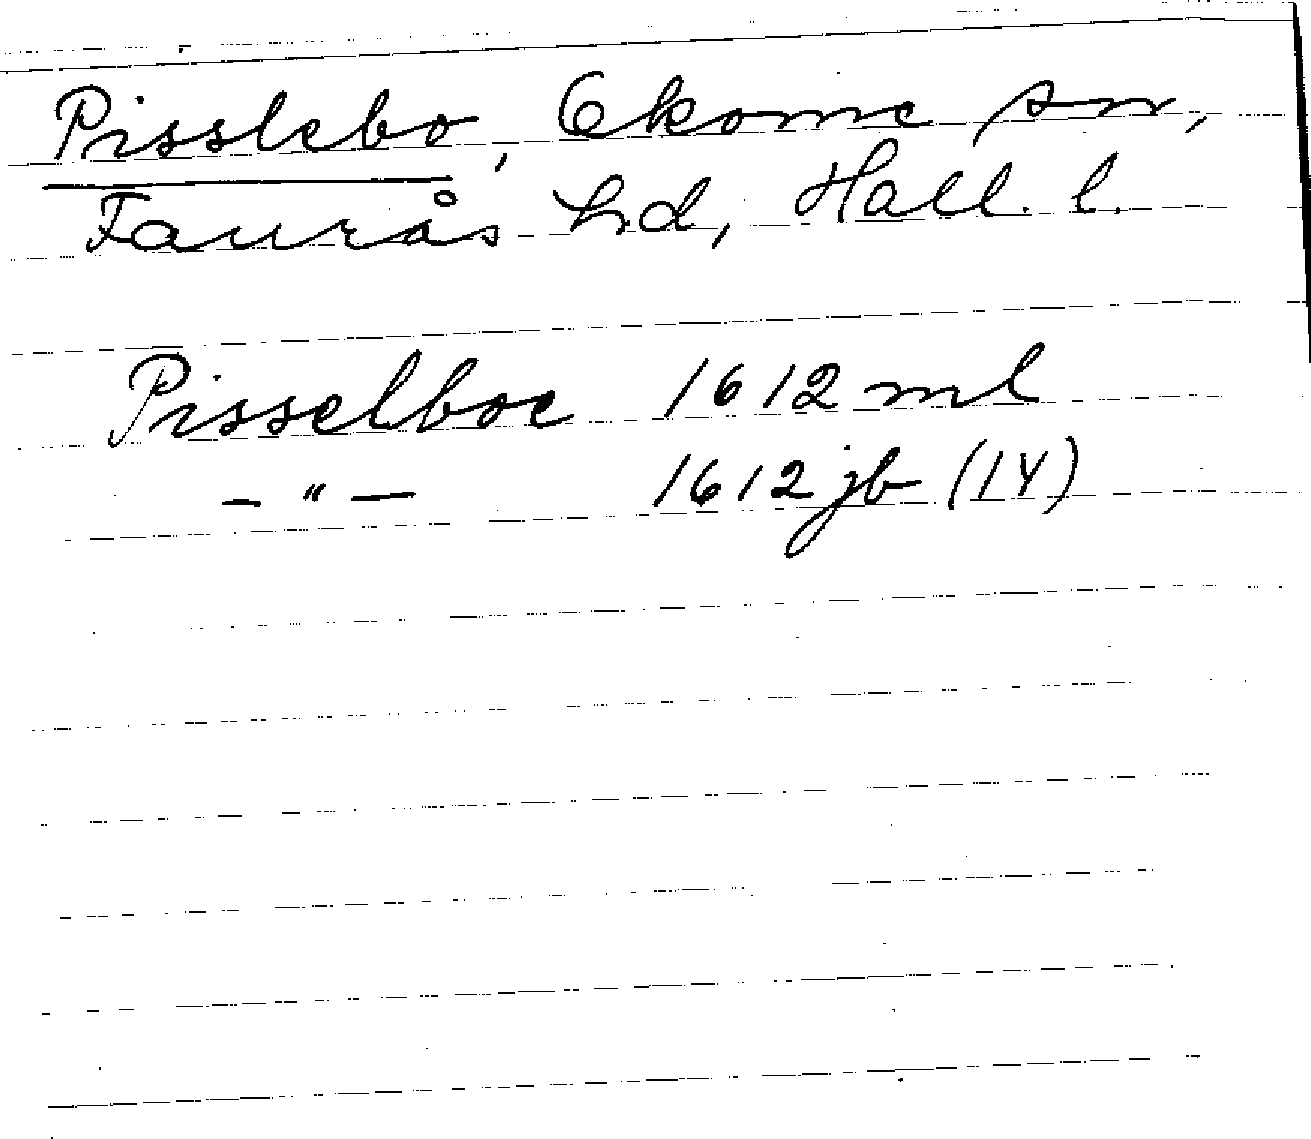 Pisslebo, Okome sn,
Faurås hd, Hall. l.
Pisselboe 1612 ml
— " — 1612 jb (14)